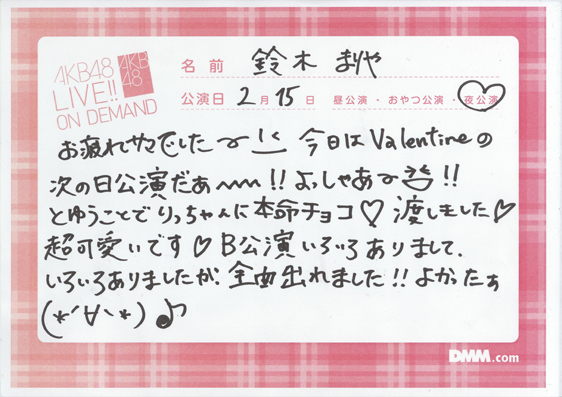 AKB48
LIVE!!
ON DEMAND
AKB
48
名前 鈴木まりや
公演日 2月15日 昼公演・おやつ公演・夜公演
お疲れサマでした〜 今日はValentineの
次の日公演だぁ〜〜!! よっしゃあ〜!!
とゆうことでりっちゃんに本命チョコ♡渡しました♡
超可愛いです♡B公演いろいろありまして、
いろいろありましたが、全曲出れました!!よかったぁ
(*´∀`*)♪
DMM.com